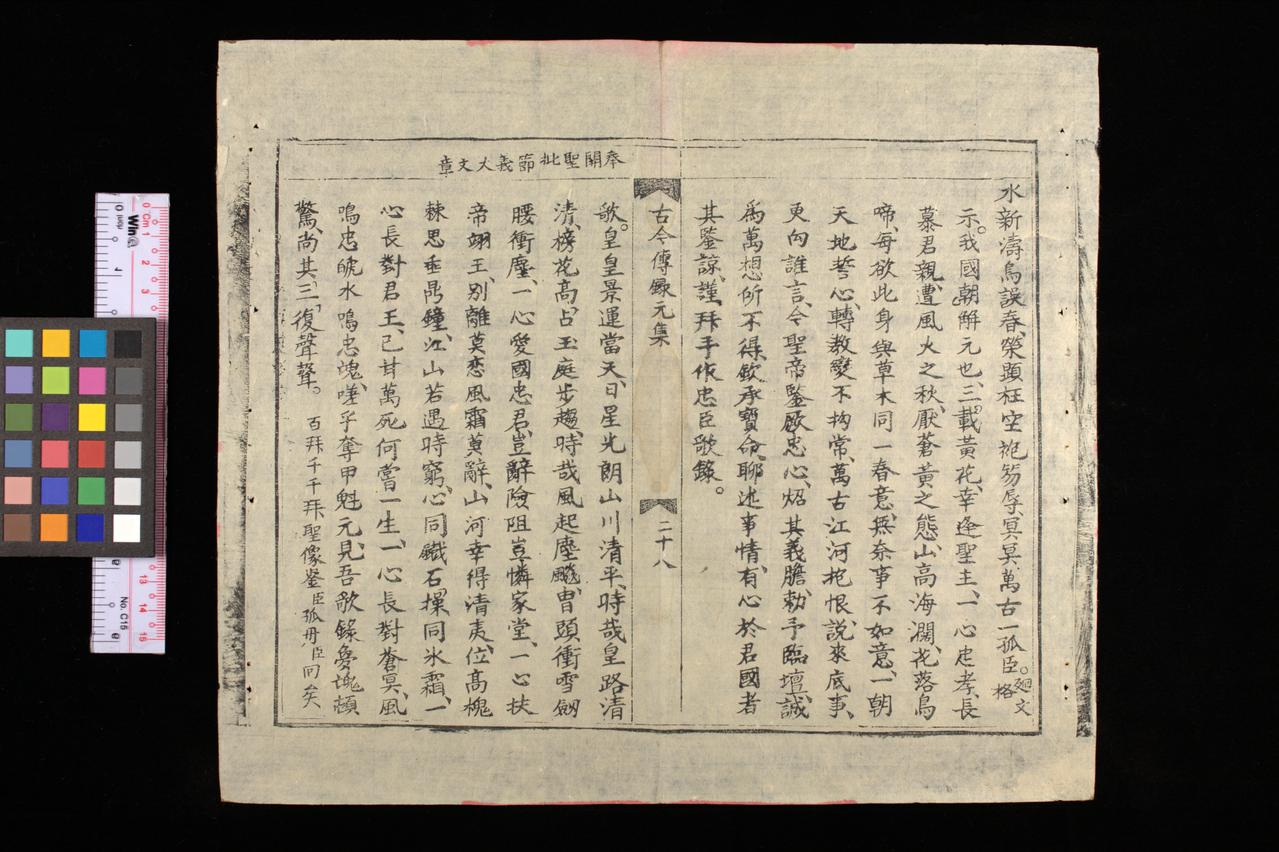 水新濤鳥誤春、榮顕枉空抱笏辱、冥冥萬古一孤臣。廻文格
示。我國朝解元也、三載黃花、幸逢聖主、一心忠孝、長
慕君親、遭風火之秋、厭蒼黃之態、山高海濶、花落鳥
啼、每欲此身與草木同一春意、無奈事不如意、一朝
天地誓心、轉教變不拘常、萬古江河抱恨、說來底事、
更向誰言、今聖帝鑒啟忠心、炤其義膽、勅予臨壇、誠
爲萬想所不得、欽承寶命、聊述事情、有心於君國者
其鑒諒、謹拜手作忠臣歌錄。
古今傳錄元集
二十八
奉關聖批節義大文章
歌。皇皇景運當天、日星光朗山川清平、時哉皇路清
清、榜花高占玉庭步趨、時哉風起塵飈、胄頭衝雪劔
腰衝塵、一心愛國忠君、豈辭險阻豈憐家堂、一心扶
帝翊王、別離莫恋風霜莫辭、山河幸得清夷、位高槐
棘思垂鼎鐘、江山若遇時窮、心同鐵石操同氷霜、一
心長對君王、已甘萬死何嘗一生、一心長對蒼冥、風
鳴忠號水鳴忠魂、嗟乎奪甲魁元、見吾歌錄夐愧頻
驚、尚其三復聲聲。百拜千千拜聖像鑒臣孤毋臣问矣
No. C15
Cm 1 2 3 13 14 15